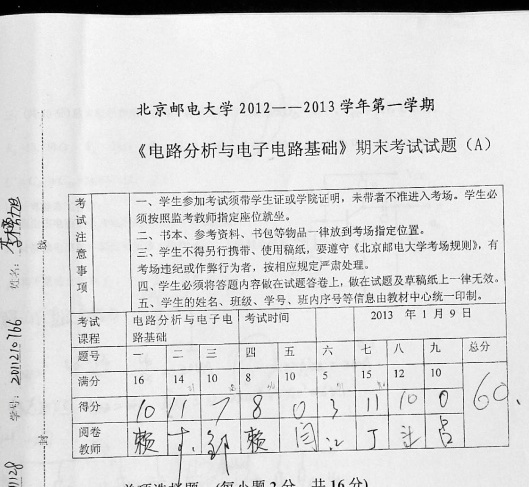 北京邮电大学 2012——2013 学年第一学期
《电路分析与电子电路基础》期末考试试题（A）
考试注意事项
一、学生参加考试须带学生证或学院证明，未带者不准进入考场。学生必
须按照监考教师指定座位就坐。
二、书本、参考资料、书包等物品一律放到考场指定位置。
三、学生不得另行携带、使用稿纸，要遵守《北京邮电大学考场规则》，有
考场违纪或作弊行为者，按相应规定严肃处理。
四、学生必须将答题内容做在试题答卷上，做在试题及草稿纸上一律无效。
五、学生的姓名、班级、学号、班内序号等信息由教材中心统一印制。
考试课程 电路分析与电子电路基础 考试时间 2013 年 1 月 9 日
题号 一 二 三 四 五 六 七 八 九 总分
满分 16 14 10 8 10 5 15 12 10
得分 10 11 7 8 0 3 11 10 0 60
阅卷教师 赖 赖 闫 江 丁 吕
单项选择题 (每小题 2 分，共 16 分)
姓名:
学号: 2011210166
封